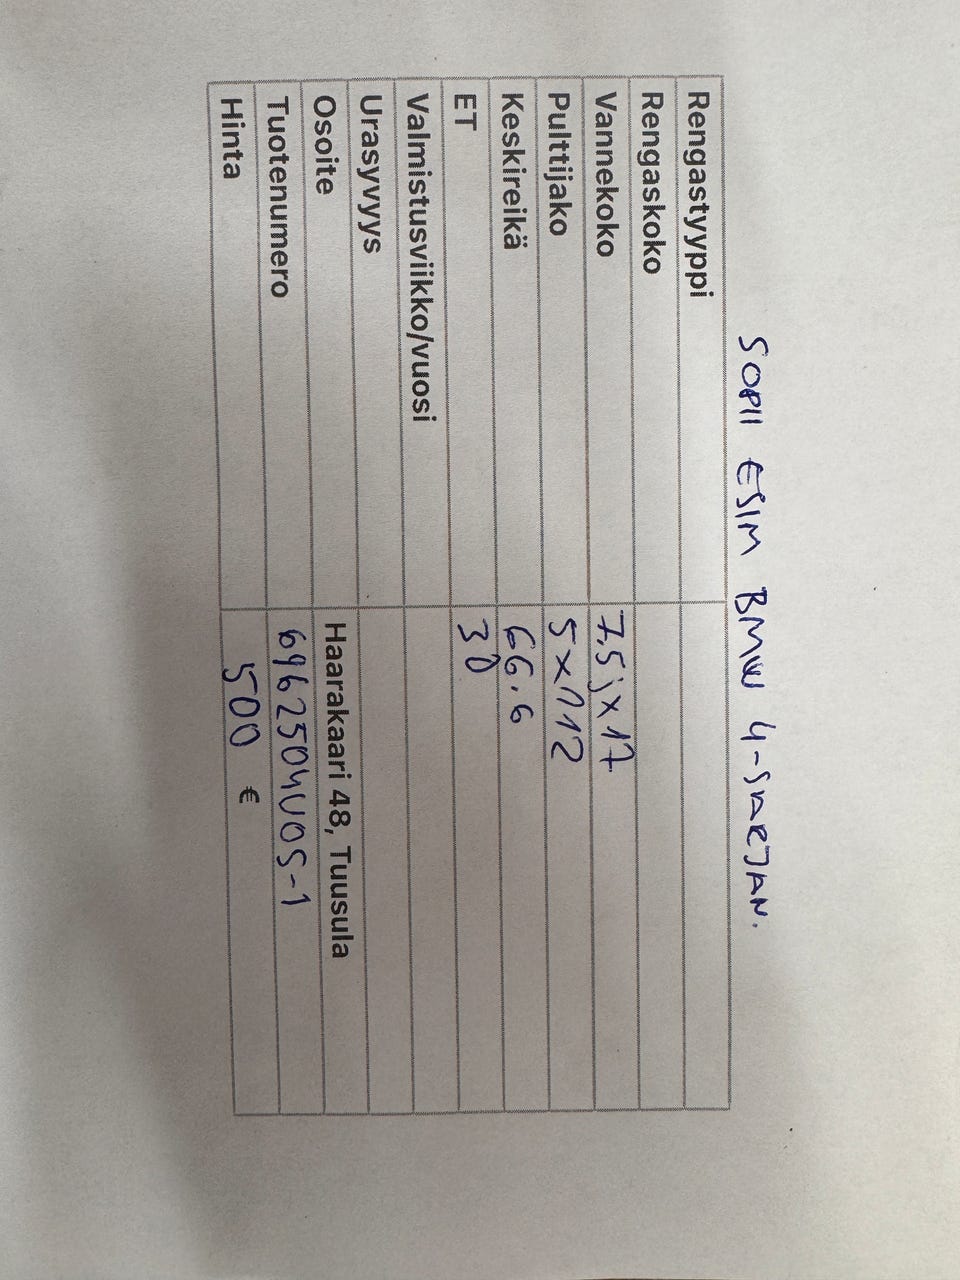 SOPII ESIM BMW 4-SARJAN.
Rengastyyppi
Rengaskoko
Vannekoko 7,5jx17
Pulttijako 5x112
Keskireikä 66.6
ET 30
Valmistusviikko/vuosi
Urasyvyys
Osoite Haarakaari 48, Tuusula
Tuotenumero 6962504UOS-1
Hinta 500 €